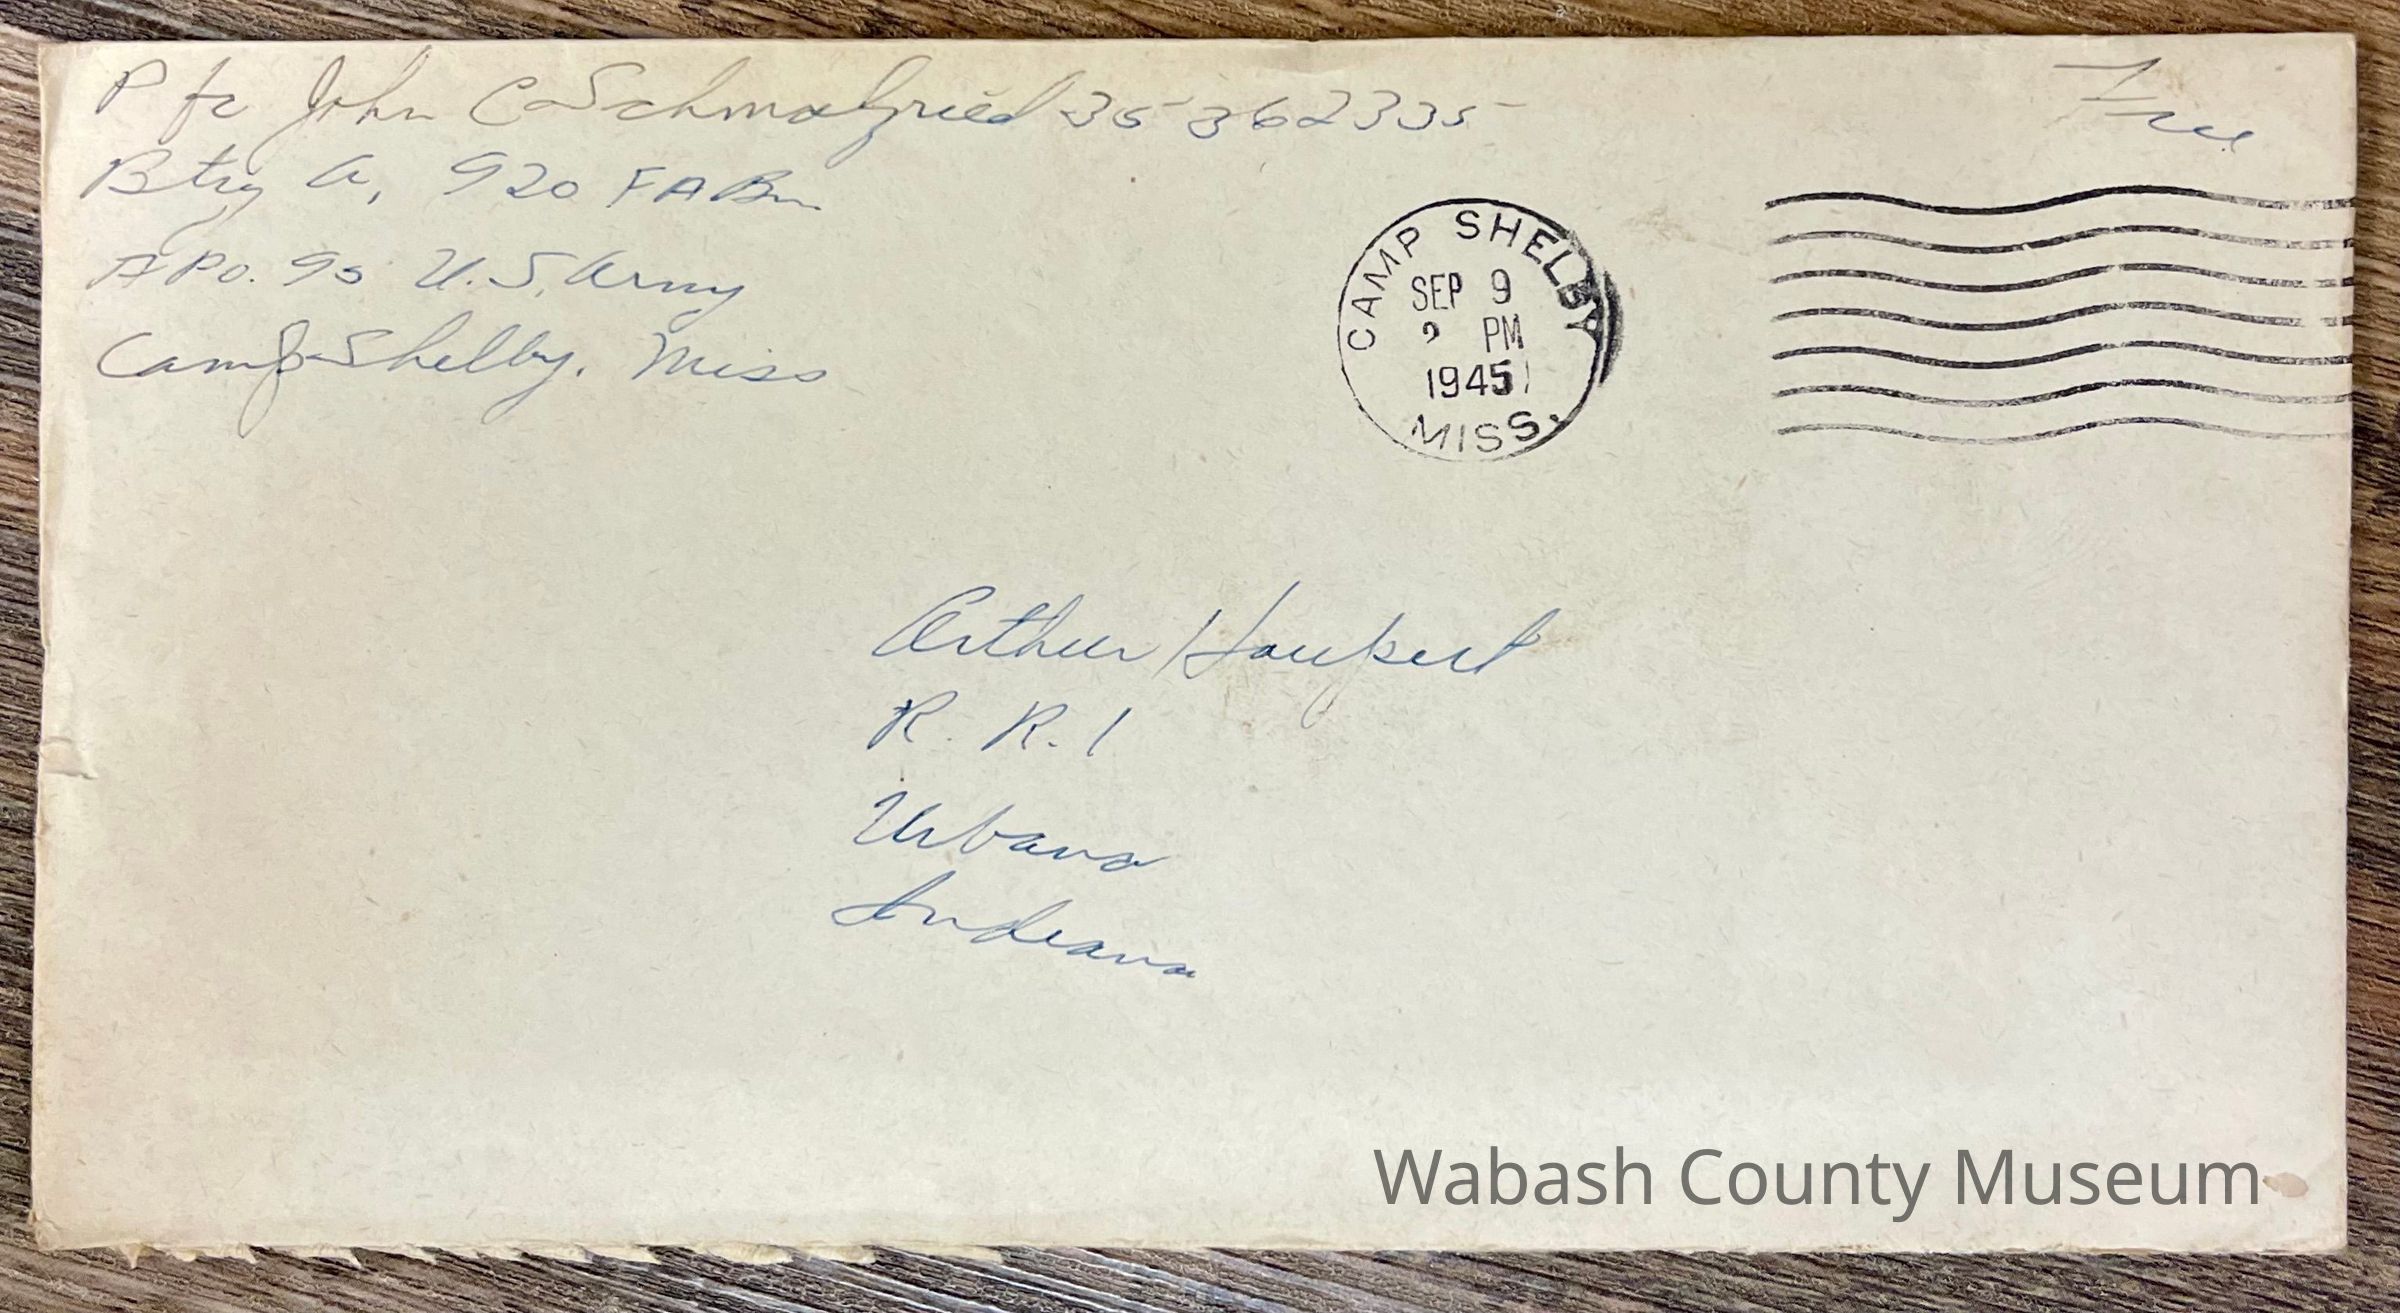 Pfc John C Schmalzried 35362335
Btry A, 920 FA Bn
APO. 95 U.S. Army
Camp Shelby, Miss
Free
CAMP SHELBY
SEP 9
PM
1945
MISS.
Arthur Haupert
R. R. 1
Urbana
Indiana
Wabash County Museum